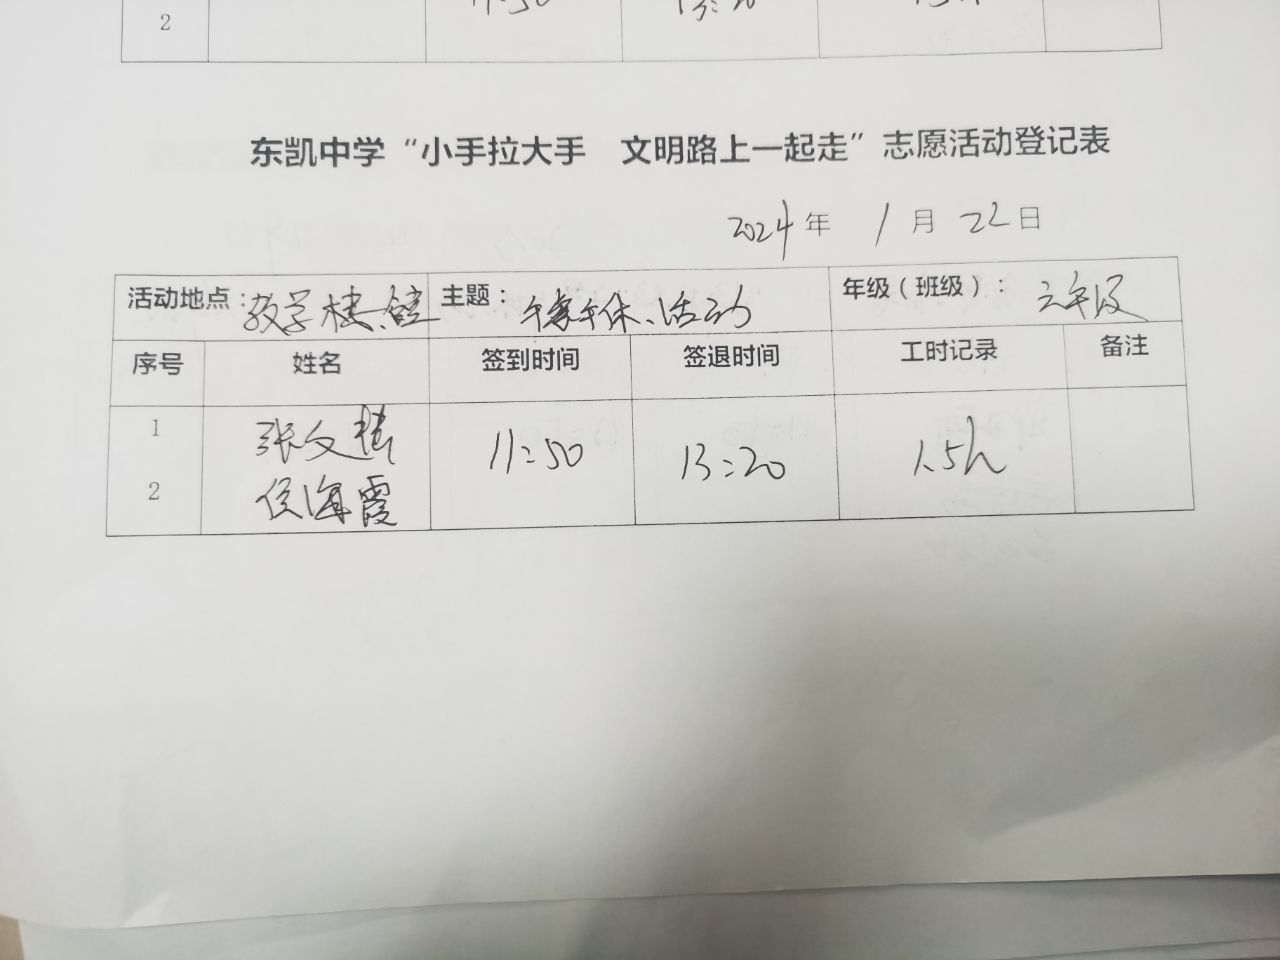 2
东凯中学“小手拉大手 文明路上一起走”志愿活动登记表
2024年 1月 22日
活动地点：教学楼、馆 主题：午餐午休、活动 年级（班级）：六年级
序号 姓名 签到时间 签退时间 工时记录 备注
1 张文 11:50 13:20 1.5h
2 侯海霞